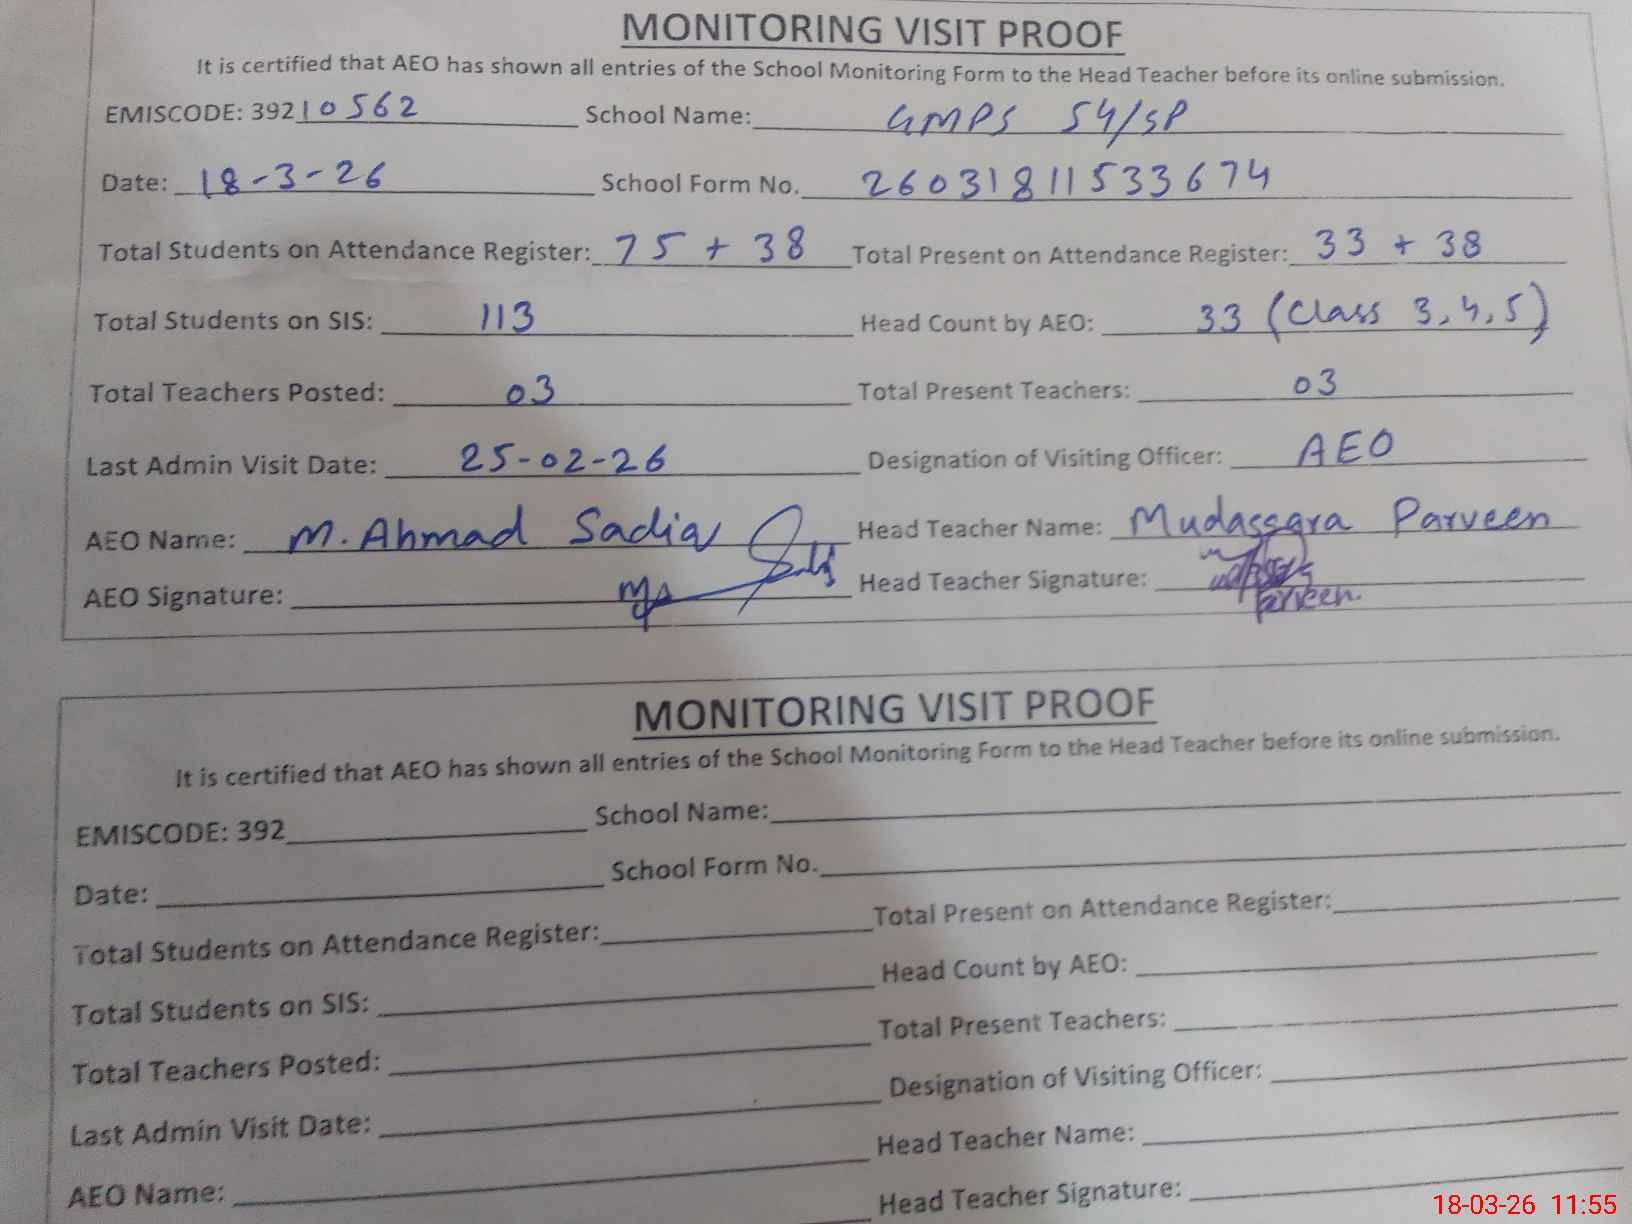 MONITORING VISIT PROOF
It is certified that AEO has shown all entries of the School Monitoring Form to the Head Teacher before its online submission.
EMISCODE: 39210562 School Name: GMPS 54/SP
Date: 18-3-26 School Form No. 26031811533674
Total Students on Attendance Register: 75 + 38 Total Present on Attendance Register: 33 + 38
Total Students on SIS: 113 Head Count by AEO: 33 (Class 3,4,5)
Total Teachers Posted: 03 Total Present Teachers: 03
Last Admin Visit Date: 25-02-26 Designation of Visiting Officer: AEO
AEO Name: M. Ahmad Sadiq Head Teacher Name: Mudassara Parveen
AEO Signature: Head Teacher Signature: Parveen.
MONITORING VISIT PROOF
It is certified that AEO has shown all entries of the School Monitoring Form to the Head Teacher before its online submission.
EMISCODE: 392 School Name:
Date: School Form No.
Total Students on Attendance Register: Total Present on Attendance Register:
Total Students on SIS: Head Count by AEO:
Total Teachers Posted: Total Present Teachers:
Last Admin Visit Date: Designation of Visiting Officer:
AEO Name: Head Teacher Name:
Head Teacher Signature:
18-03-26 11:55